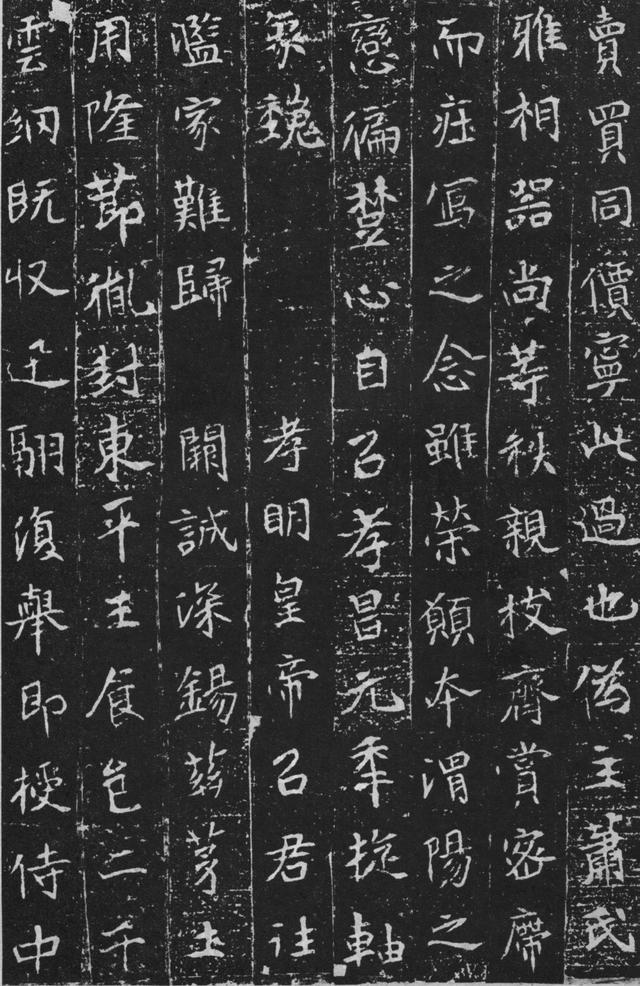 賣買同價寧此過也僞主蕭氏
雅相器尚等秩親枝齊賞密席
而莊寫之念雖榮願本渭陽之
戀偏楚心自召孝昌元年旋軸
象魏孝明皇帝召君往
濫家難歸闕誠深錫茲茅土
用隆節胤封東平王食邑二千
雲網既收逸翮復舉即授侍中